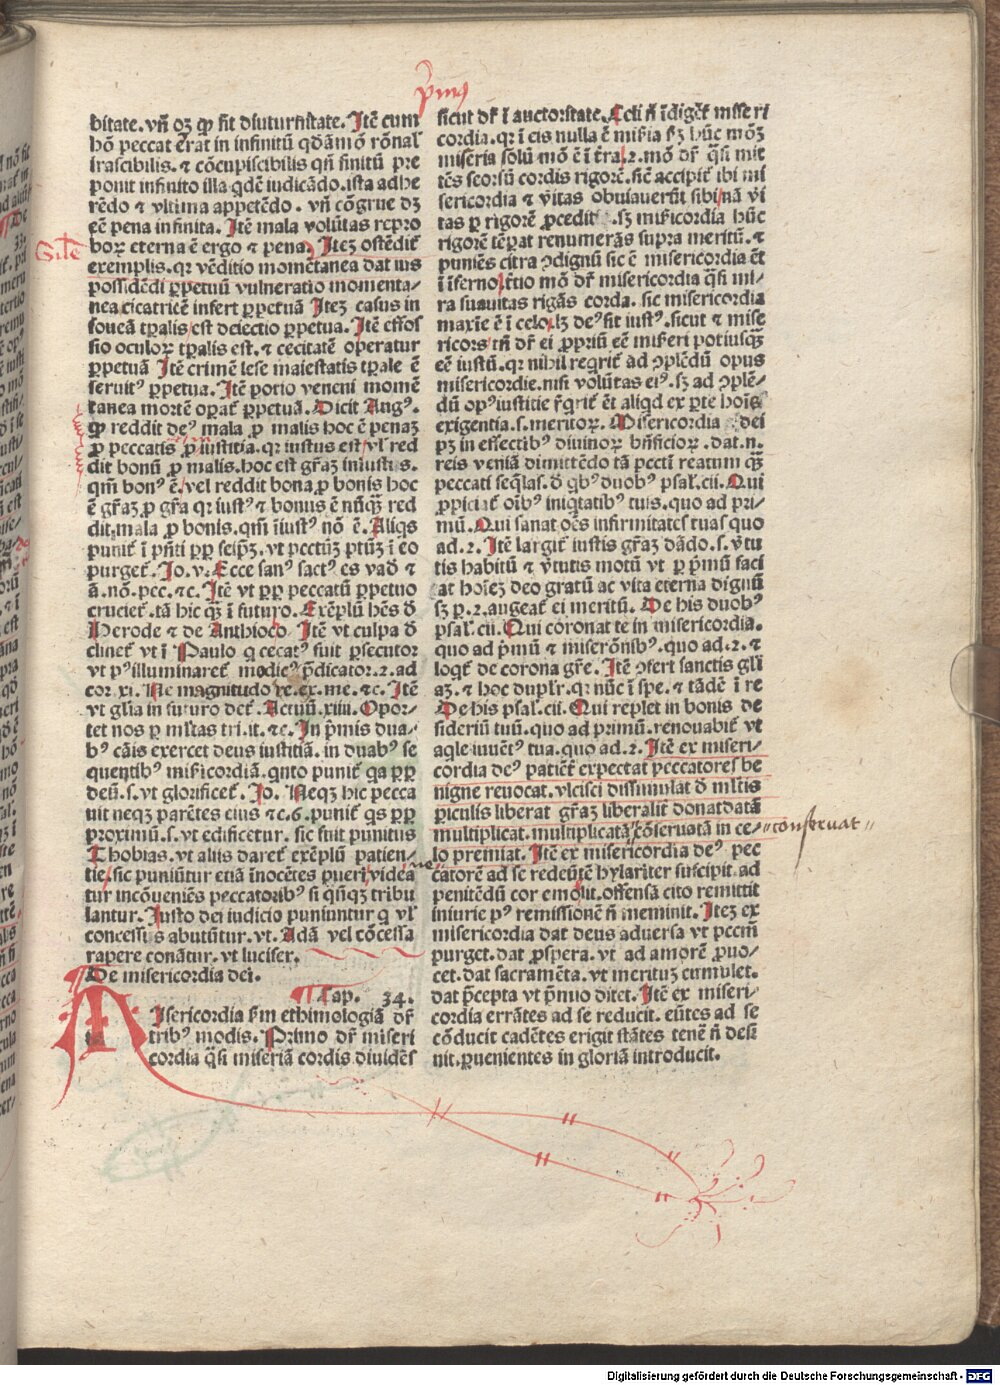 p̄mꝰ
bitate. vñ oꝫ ꝙ sit diuturnitate. Itē cum
hō peccat erat in infinitū qdāmō rōnal̓
irascibilis. ⁊ cōcupiscibilis qñ finitū pre
ponit infinito illa qdē iudicādo. ista adhe
rēdo ⁊ vltima appetēdo. vñ cōgrue dꝫ
eē pena infinita. Itē mala volūtas repro
boꝝ eterna ē ergo ⁊ pena. Iteꝫ ostēdit᷑
exemplis. qꝛ vēditio momētanea dat ius
possidēdi ꝑpetuū vulneratio momenta-
nea cicatricē infert ꝑpetuā Iteꝫ casus in
foueā tꝑalis est deiectio ꝑpetua. Itē effos
sio oculoꝝ tꝑalis est. ⁊ cecitatē operatur
ꝑpetuā Itē crimē lese maiestatis tꝑale ē
seruitꝰ ꝑpetua. Itē potio veneni momē
tanea mortē oꝑat᷑ ꝑpetuā. Dicit Augꝰ.
ꝙ reddit deꝰ mala ꝓ malis hoc ē penaꝫ
ꝓ peccatis ꝓ iustitia. qꝛ iustus est vl̓ red
dit bonū ꝓ malis. hoc est gr̄aꝫ iniustis.
qm̄ bonꝰ ē. vel reddit bona ꝓ bonis hoc
ē gr̄aꝫ ꝓ gr̄a qꝛ iustꝰ ⁊ bonus ē nūqꝫ red
dit mala ꝓ bonis. qm̄ īiustꝰ nō ē. Aliqs
punit᷑ ī pn̄ti ꝓp̄ seip̄ꝫ. vt pctūꝫ ptūꝫ ī eo
purget᷑. Io. v. Ecce sanꝰ factꝰ es vad̄ ⁊
ā. nō. pec. ⁊c. Itē vt ꝓp̄ peccatū ꝑpetuo
cruciet᷑. tā hic qꝫ ī futuro. Exēplū hēs d̄
Herode ⁊ de Anthioco. Itē vt culpa d̄
clinet᷑ vt ī Paulo q cecatꝰ fuit ꝑsecutor
vt pꝰ illuminaret᷑ modicꝰ p̄dicator. 2. ad
cor. xi. Ne magnitudo re. ex. me. ⁊c. Itē
vt gl̓ia in futuro det᷑. Actuū. xiiii. Opor-
tet nos ꝑ ml̓tas tri. it. ⁊c. In p̄mis dua-
bꝰ cāis exercet deus iustitiā. in duabꝰ se
quentibꝰ mīsicordiā. qnto punit᷑ qa ꝓp̄
deū. s. vt glorificet᷑. Io. Neqꝫ hic pecca
uit neqꝫ parētes eius ⁊c. 6. punit᷑ qs ꝓp̄
ꝓximū. s. vt edificetur. sic fuit punitus
Thobias. vt aliis daret᷑ exēplū patien-
tie. sic puniūtur etiā inocētes pueri, videā
tur incōueniēs peccatoribꝰ si qn̄qꝫ tribu
lantur. Iusto dei iudicio puniuntur q vl̓
concessis abutūtur. vt. Adā vel cōcessa
rapere conātur. vt lucifer.
De misericordia dei.
Cap. 34.
Misericordia ẜm ethimologiā dr̄
tribꝰ modis. Primo dr̄ miseri
cordia q̄si miseriā cordis diuidēs
sicut dr̄ ī auctoritate. Celi n̄ īdigēt᷑ miseri
cordia. qꝛ ī eis nulla ē mīs̓ia ẜꝫ hūc mōꝫ
miseria solū mō ē ī t̄ra. 2. mō dr̄ q̄si mit
tēs seorsū cordis rigorē. sic accipit᷑ ibi mi
sericordia ⁊ v̄itas obuiauerūt sibi nā v̄i
tas ꝑ rigorē ꝓcedit. ẜꝫ mīsicordia hūc
rigorē tēꝑat renumerās supra meritū. ⁊
puniēs citra ꝯdignū sic ē misericordia ēt
ī īferno. t̄tio mō dr̄ misericordia q̄si mi-
ra suauitas rigās corda. sic misericordia
maxīe ē ī celo. lꝫ deꝰ sit iustꝰ. sicut ⁊ mise
ricors tn̄ dr̄ ei ꝓpriū eē mis̓eri potiusqꝫ
eē iustū. qꝛ nihil reqrit᷑ ad ꝯplēdū opus
misericordie. nisi volūtas eiꝰ. ẜꝫ ad ꝯplē-
dū opꝰ iustitie r̄qrit᷑ ēt aliqd ex ꝑte hoīs
exigentia. s. meritoꝝ. Misericordia dei
pꝫ in effectibꝰ diuinoꝝ bn̄ficioꝝ. dat. n.
reis veniā dimittēdo tā pcc̄ti reatum qꝫ
peccati seq̄las. d̄ qbꝰ duobꝰ psal̓. cii. Qui
ꝓpiciat᷑ oībꝰ iniqtatibꝰ tuis. quo ad pri-
mū. Qui sanat oēs infirmitates tuas quo
ad. 2. Itē largit᷑ iustis gr̄aꝫ dādo. s. v̄tu
tis habitū ⁊ v̄tutis motū vt ꝑ p̄mū faci
at hoīeꝫ deo gratū ac vita eterna dignū
ẜꝫ ꝑ. 2. augeat᷑ ei meritū. De his duobꝰ
psal̓. cii. Qui coronat te in misericordia.
quo ad p̄mū ⁊ miserōnibꝰ. quo ad. 2. ⁊
loqt᷑ de corona gr̄e. Itē ꝯfert sanctis gl̓i
aꝫ. ⁊ hoc dupl̓r. qꝛ nūc ī spe. ⁊ tādē ī re
De his psal̓. cii. Qui replet in bonis de
sideriū tuū. quo ad primū. renouabit᷑ vt
aqle iuuētꝰ tua. quo ad. 2. Itē ex miseri-
cordia deꝰ patiēt᷑ expectat peccatores be
nigne reuocat. vlcisci dissimulat d̄ ml̓tis
periculis liberat graꝫ liberalit᷑ donat datā
multiplicat. multiplicatā cōseruatā in ce-
conseruat
lo premiat. Itē ex misericordia deꝰ pec
catorē ad se redeūtē hylariter suscipit. ad
penitēdū cor emolit. offensā cito remittit
iniurie pꝰ remissionē n̄ meminit. Iteꝫ ex
misericordia dat deus aduersa vt pccm̄
purget. dat ꝓspera. vt ad amorē ꝓuo-
cet. dat sacramēta. vt merituꝫ cumulet.
dat p̄cepta vt p̄mio ditet. Itē ex miseri-
cordia errātes ad se reducit. eūtes ad se
cōducit cadētes erigit stātes tenꝫ n̄ desi
nit. ꝑuenientes in gloriā introducit.
Digitalisierung gefördert durch die Deutsche Forschungsgemeinschaft - DFG